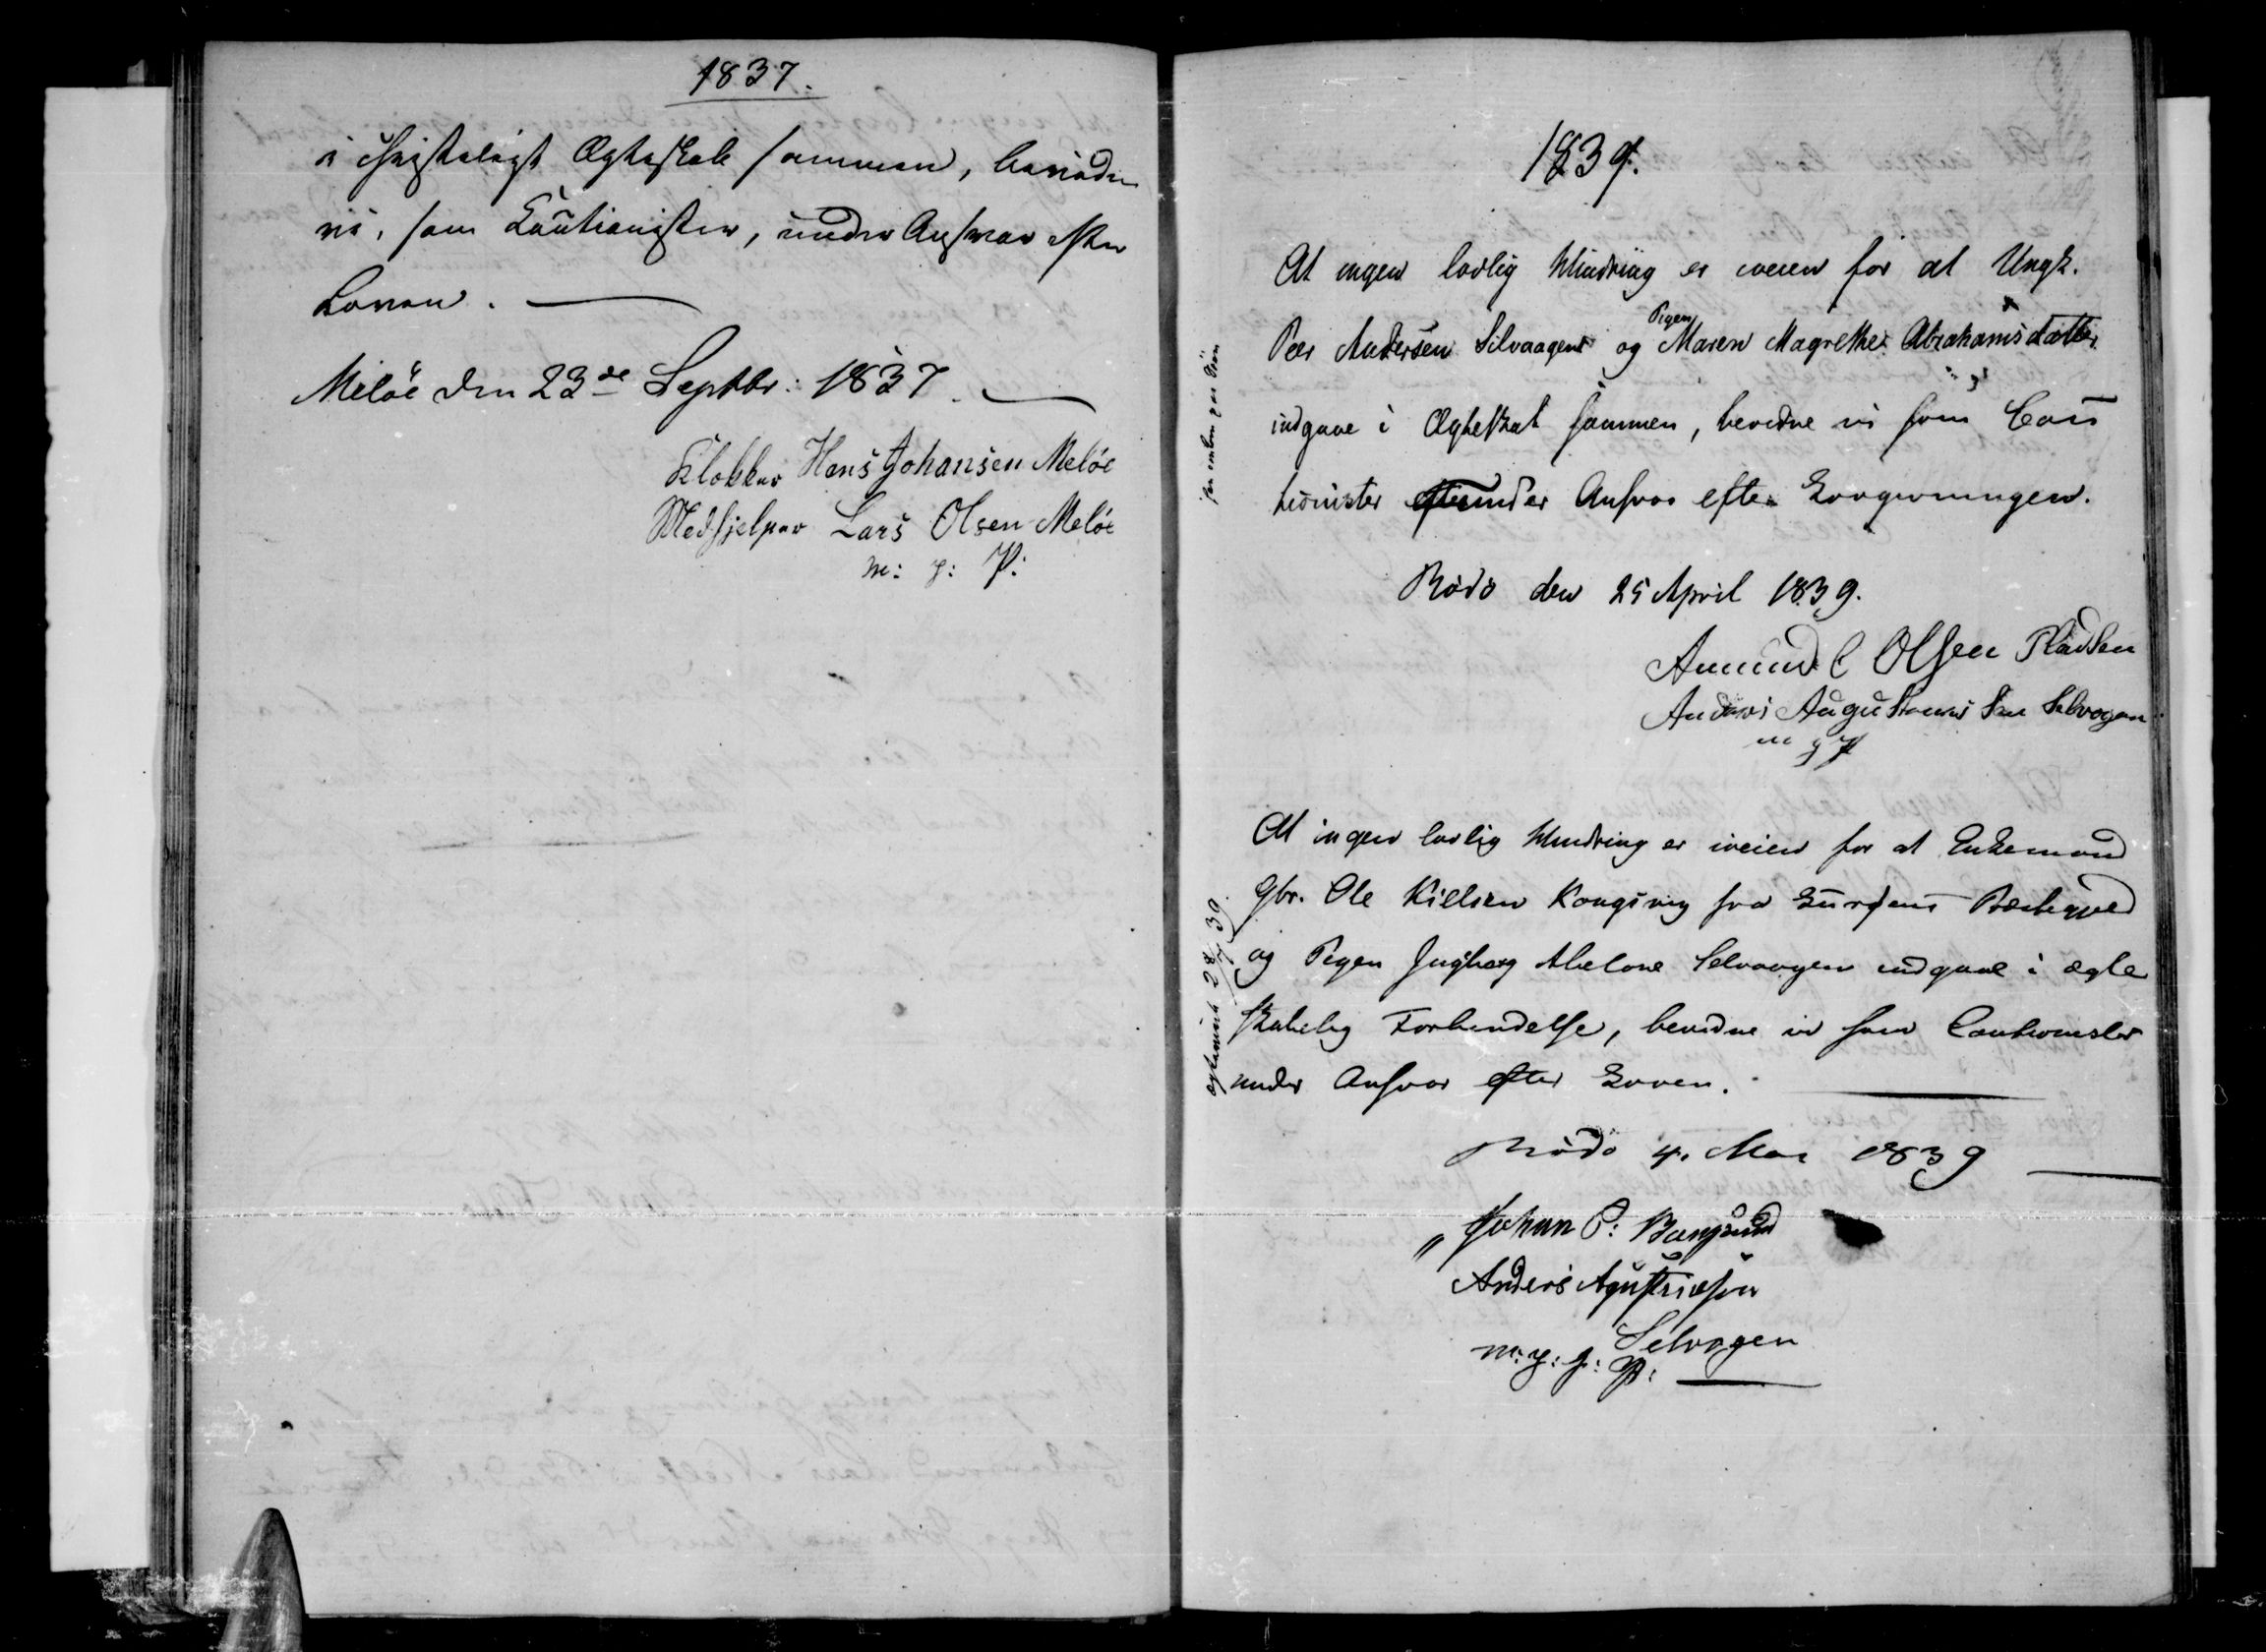 1837.
i christeligt Ægteskab sammen, bevidne
vi, som Cautionister, under Ansvar efter
Loven.
Meløe den 23de Septbr: 1837.
Klokker Hans Johansen Meløe
Medhjelper Lars Olsen Meløe
m: p: P:
1839.
At ingen lovlig Hindring er iveien for at Ungk.
Peer Andersen Selvaagen og Pigen Maren Magrethe Abrahamsdatter
indgaae i Ægteskab sammen, bevidne vi som Cau
tionister under Ansvar efter Lovgivningen.
Rødø den 25 April 1839.
Amund C Olsen Pladsen
Anders Augustinus Sen Selvogen
m g P
At ingen lovlig Hindring er iveien for at Enkemand
Gbr. Ole Nielsen Kongsvig fra Lurøens Præstegjeld
og Pigen Ingborg Abelone Selvaagen indgaae i ægte
skabelig Forbindelse, bevidne vi som Cautionister
under Ansvar efter Loven.
Rødø 4. Mai 1839
Johan P: Bangsund
Anders Agustinesen
Selvogen
m: p: g: P: